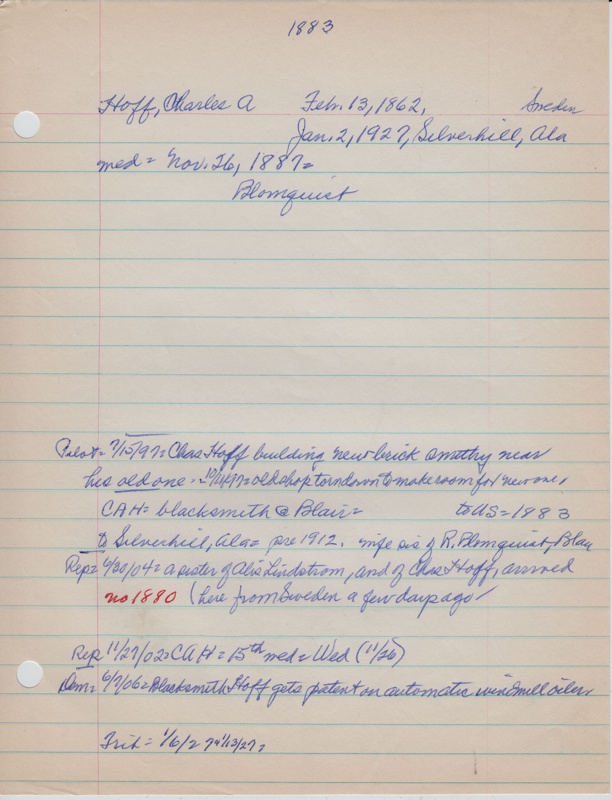 1883
Hoff, Charles A Feb. 13, 1862, Sweden
Jan. 2, 1927, Silverhill, Ala
med = Nov. 26, 1887 =
Blomquist
Pilot = 7/15/97 = Chas Hoff building new brick smithy near
his old one = 10/14/97 = old shop torn down to make room for new one,
CAH = blacksmith @ Blair = to US = 1883
to Silverhill, Ala = pre 1912. wife sis of R. Blomquist, Blair
Rep = 6/30/04 = a sister of Alvis Lindstrom, and of Chas Hoff, arrived
no 1880 (here from Sweden a few days ago
Rep 11/27/02 = CAH = 15th med = Wed (11/26)
Dem = 6/7/06 = Blacksmith Hoff gets patent on automatic windmill oiler,
Trib = 1/6/27 & 1/13/27 =